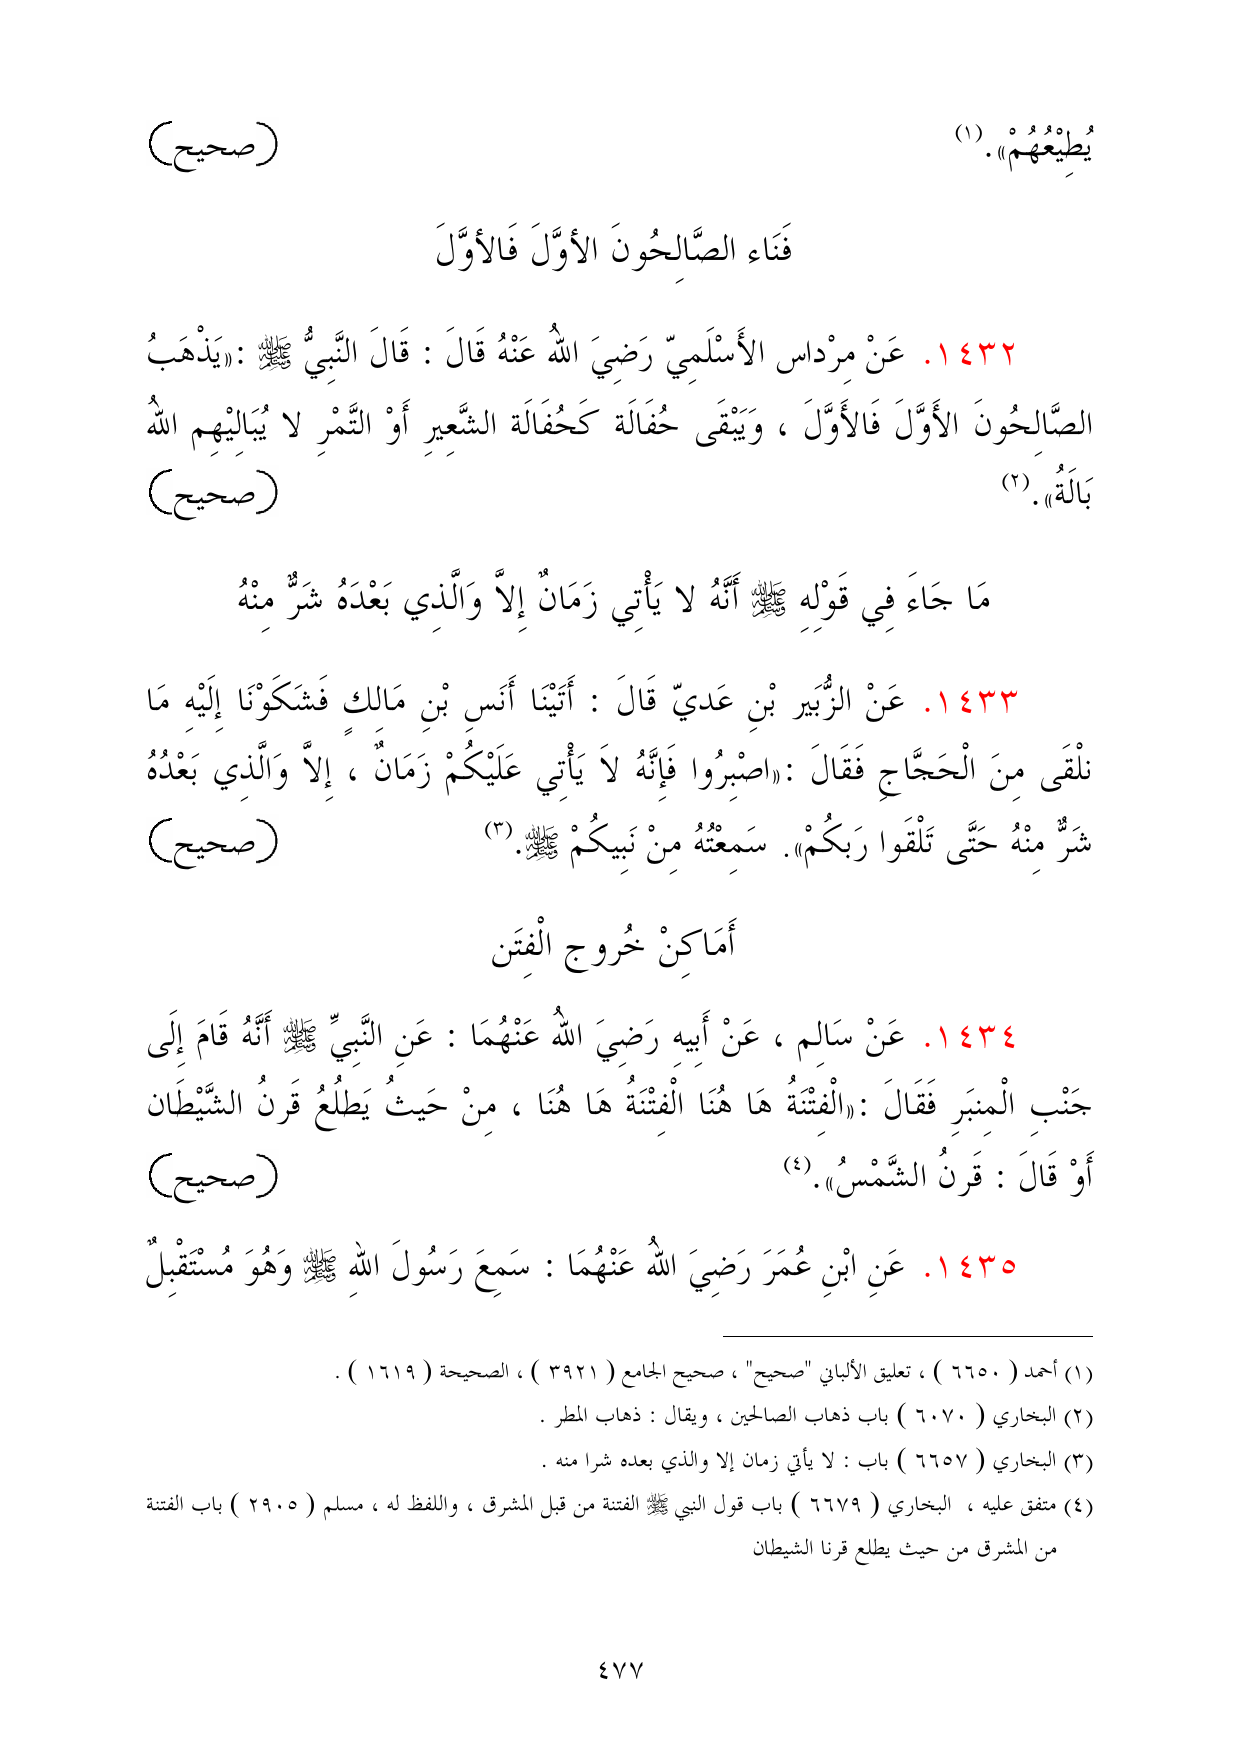 يُطِيْعُهُمْ». (١) (صحيح)
فَنَاء الصَّالِحُونَ الأوَّلَ فَالأوَّلَ
١٤٣٢. عَنْ مِرْداس الأَسْلَمِيّ رَضِيَ اللهُ عَنْهُ قَالَ : قَالَ النَّبِيُّ ﷺ :«يَذْهَبُ
الصَّالِحُونَ الأَوَّلَ فَالأَوَّلَ ، وَيَبْقَى حُفَالَة كَحُفَالَة الشَّعِيرِ أَوْ التَّمْرِ لا يُبَالِيْهِم اللهُ
بَالَةُ». (٢) (صحيح)
مَا جَاءَ فِي قَوْلِهِ ﷺ أَنَّهُ لا يَأْتِي زَمَانٌ إِلاَّ وَالَّذِي بَعْدَهُ شَرٌّ مِنْهُ
١٤٣٣. عَنْ الزُّبَير بْنِ عَديّ قَالَ : أَتَيْنَا أَنَس بْنِ مَالِكٍ فَشَكَوْنَا إِلَيْهِ مَا
نلْقَى مِنَ الْحَجَّاجِ فَقَالَ :«اصْبِرُوا فَإِنَّهُ لاَ يَأْتِي عَلَيْكُمْ زَمَانٌ ، إِلاَّ وَالَّذِي بَعْدُهُ
شَرٌّ مِنْهُ حَتَّى تَلْقَوا رَبكُمْ». سَمِعْتُهُ مِنْ نَبِيكُمْ ﷺ. (٣) (صحيح)
أَمَاكِنْ خُروج الْفِتَن
١٤٣٤. عَنْ سَالِم ، عَنْ أَبِيهِ رَضِيَ اللهُ عَنْهُمَا : عَنِ النَّبِيِّ ﷺ أَنَّهُ قَامَ إِلَى
جَنْبِ الْمِنبَرِ فَقَالَ :«الْفِتْنَةُ هَا هُنَا الْفِتْنَةُ هَا هُنَا ، مِنْ حَيثُ يَطلُعُ قَرنُ الشَّيْطَان
أَوْ قَالَ : قَرنُ الشَّمْسُ». (٤) (صحيح)
١٤٣٥. عَنِ ابْنِ عُمَرَ رَضِيَ اللهُ عَنْهُمَا : سَمِعَ رَسُولَ اللهِ ﷺ وَهُوَ مُسْتَقْبِلٌ
(١) أحمد ( ٦٦٥٠ ) ، تعليق الألباني "صحيح" ، صحيح الجامع ( ٣٩٢١ ) ، الصحيحة ( ١٦١٩ ) .
(٢) البخاري ( ٦٠٧٠ ) باب ذهاب الصالحين ، ويقال : ذهاب المطر .
(٣) البخاري ( ٦٦٥٧ ) باب : لا يأتي زمان إلا والذي بعده شرا منه .
(٤) متفق عليه ، البخاري ( ٦٦٧٩ ) باب قول النبي ﷺ الفتنة من قبل المشرق ، واللفظ له ، مسلم ( ٢٩٠٥ ) باب الفتنة
من المشرق من حيث يطلع قرنا الشيطان
٤٧٧